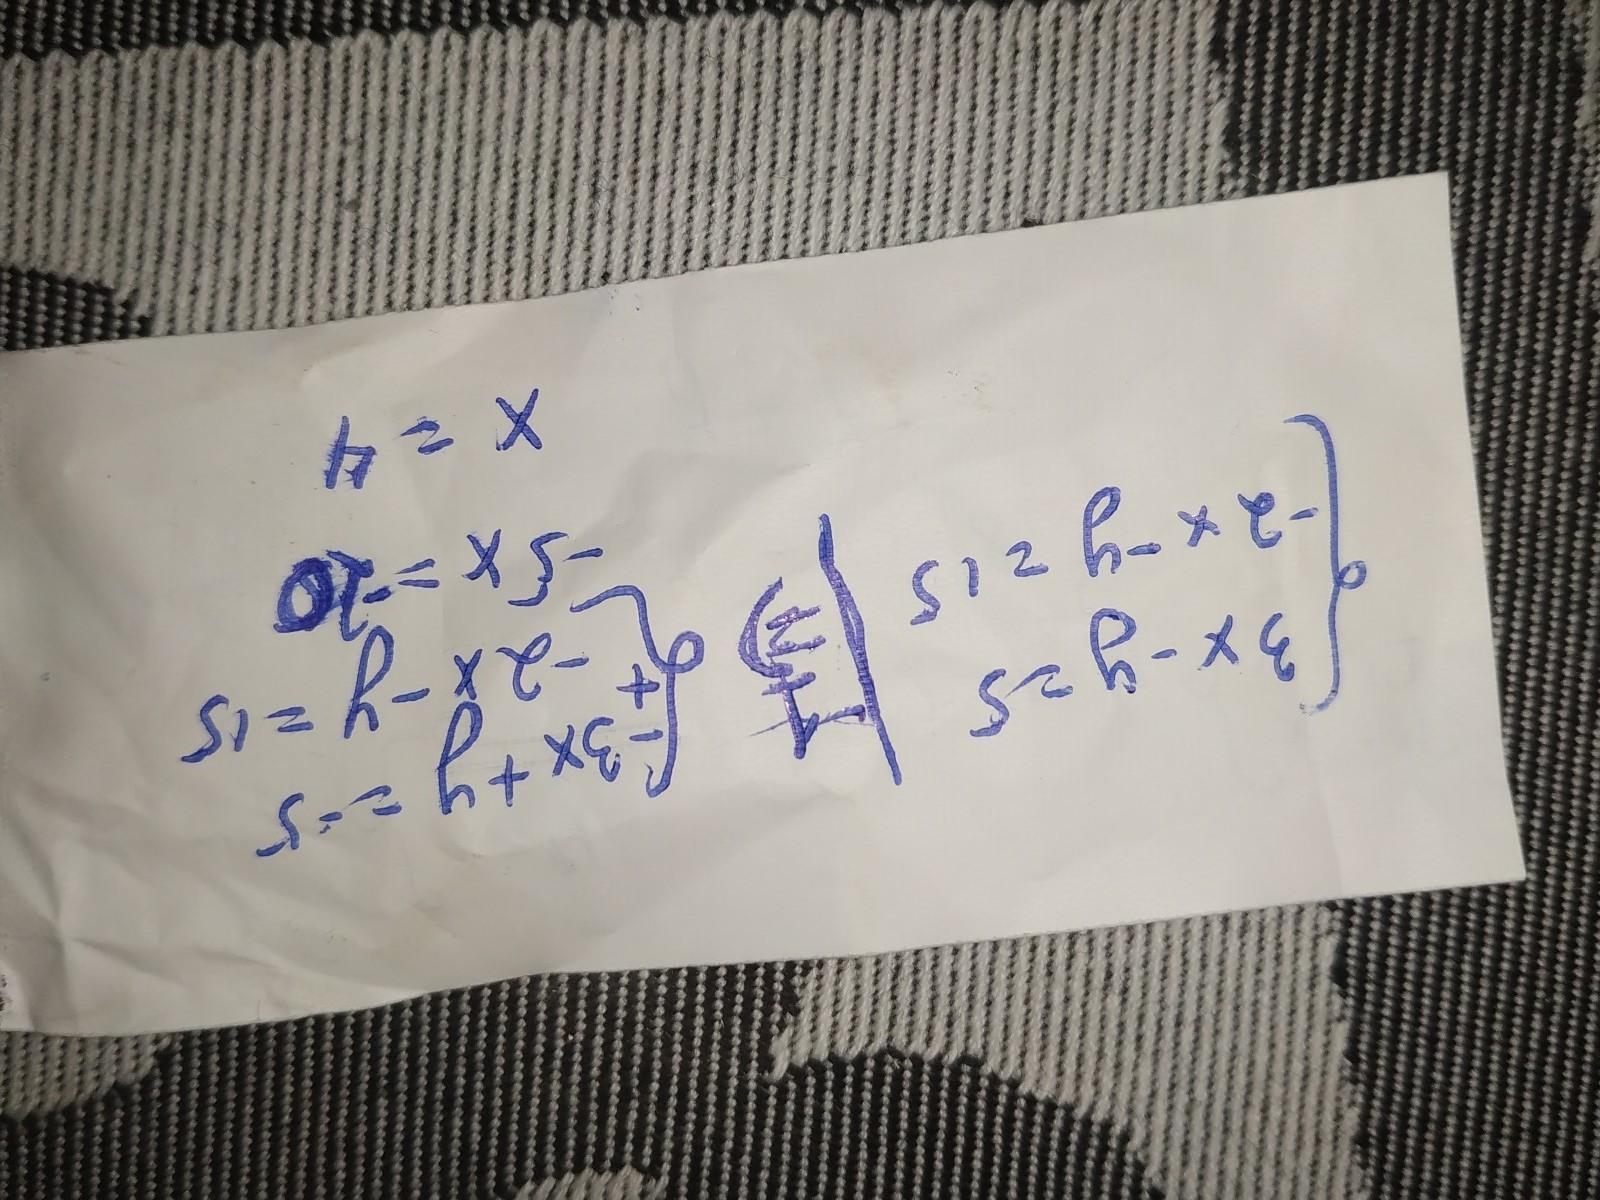 3x - y = 5
-2x - y = 15
-3x + y = -5
+
-2x - y = 15
-5x = -20
x = 4